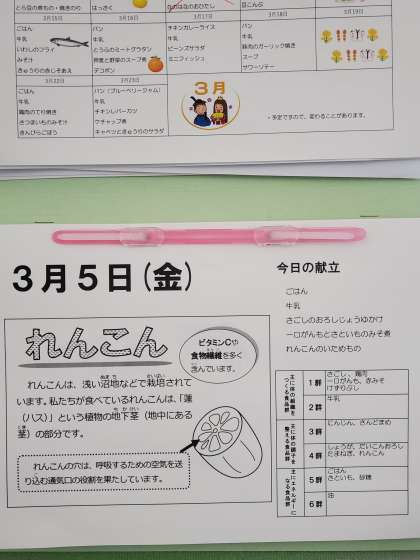 とら豆の煮もの・焼きのり
はっさく
豆こんぶ
3月15日
3月16日
3月17日
3月18日
3月19日
ごはん
牛乳
いわしのフライ
みそ汁
きゅうりの赤じそあえ
パン
牛乳
とうふのミートグラタン
押麦と野菜のスープ煮
デコポン
チキンカレーライス
牛乳
ビーンズサラダ
ミニフィッシュ
パン
牛乳
豚肉のガーリック焼き
スープ
サワーソテー
3月22日
3月23日
ごはん
牛乳
鶏肉のてり焼き
さつまいものみそ汁
きんぴらごぼう
パン(ブルーベリージャム)
牛乳
チキンレバーカツ
ウチャップ煮
キャベツときゅうりのサラダ
3月
・予定ですので、変わることがあります。
3月5日(金)
今日の献立
ごはん
牛乳
さごしのおろしじょうゆかけ
一口がんもとさといものみそ煮
れんこんのいためもの
れんこん
ビタミンCや
食物繊維を多く
含んでいます。
れんこんは、浅い沼地などで栽培されて
います。私たちが食べているれんこんは、「蓮
(ハス)」という植物の地下茎(地中にある
茎)の部分です。
れんこんの穴は、呼吸するための空気を送
り込む通気口の役割を果たしています。
主に体の組織をつくる食品群
1群
さごし、鶏肉
一口がんも、赤みそ
けずりぶし
2群
牛乳
主に体の調子を整える食品群
3群
にんじん、さんどまめ
4群
しょうが、だいこんおろし
たまねぎ、れんこん
主にエネルギーになる食品群
5群
ごはん
さといも、砂糖
6群
油